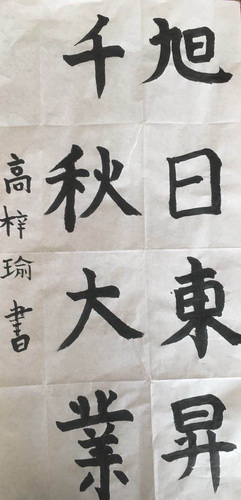 旭日東昇
千秋大業
高梓瑜書